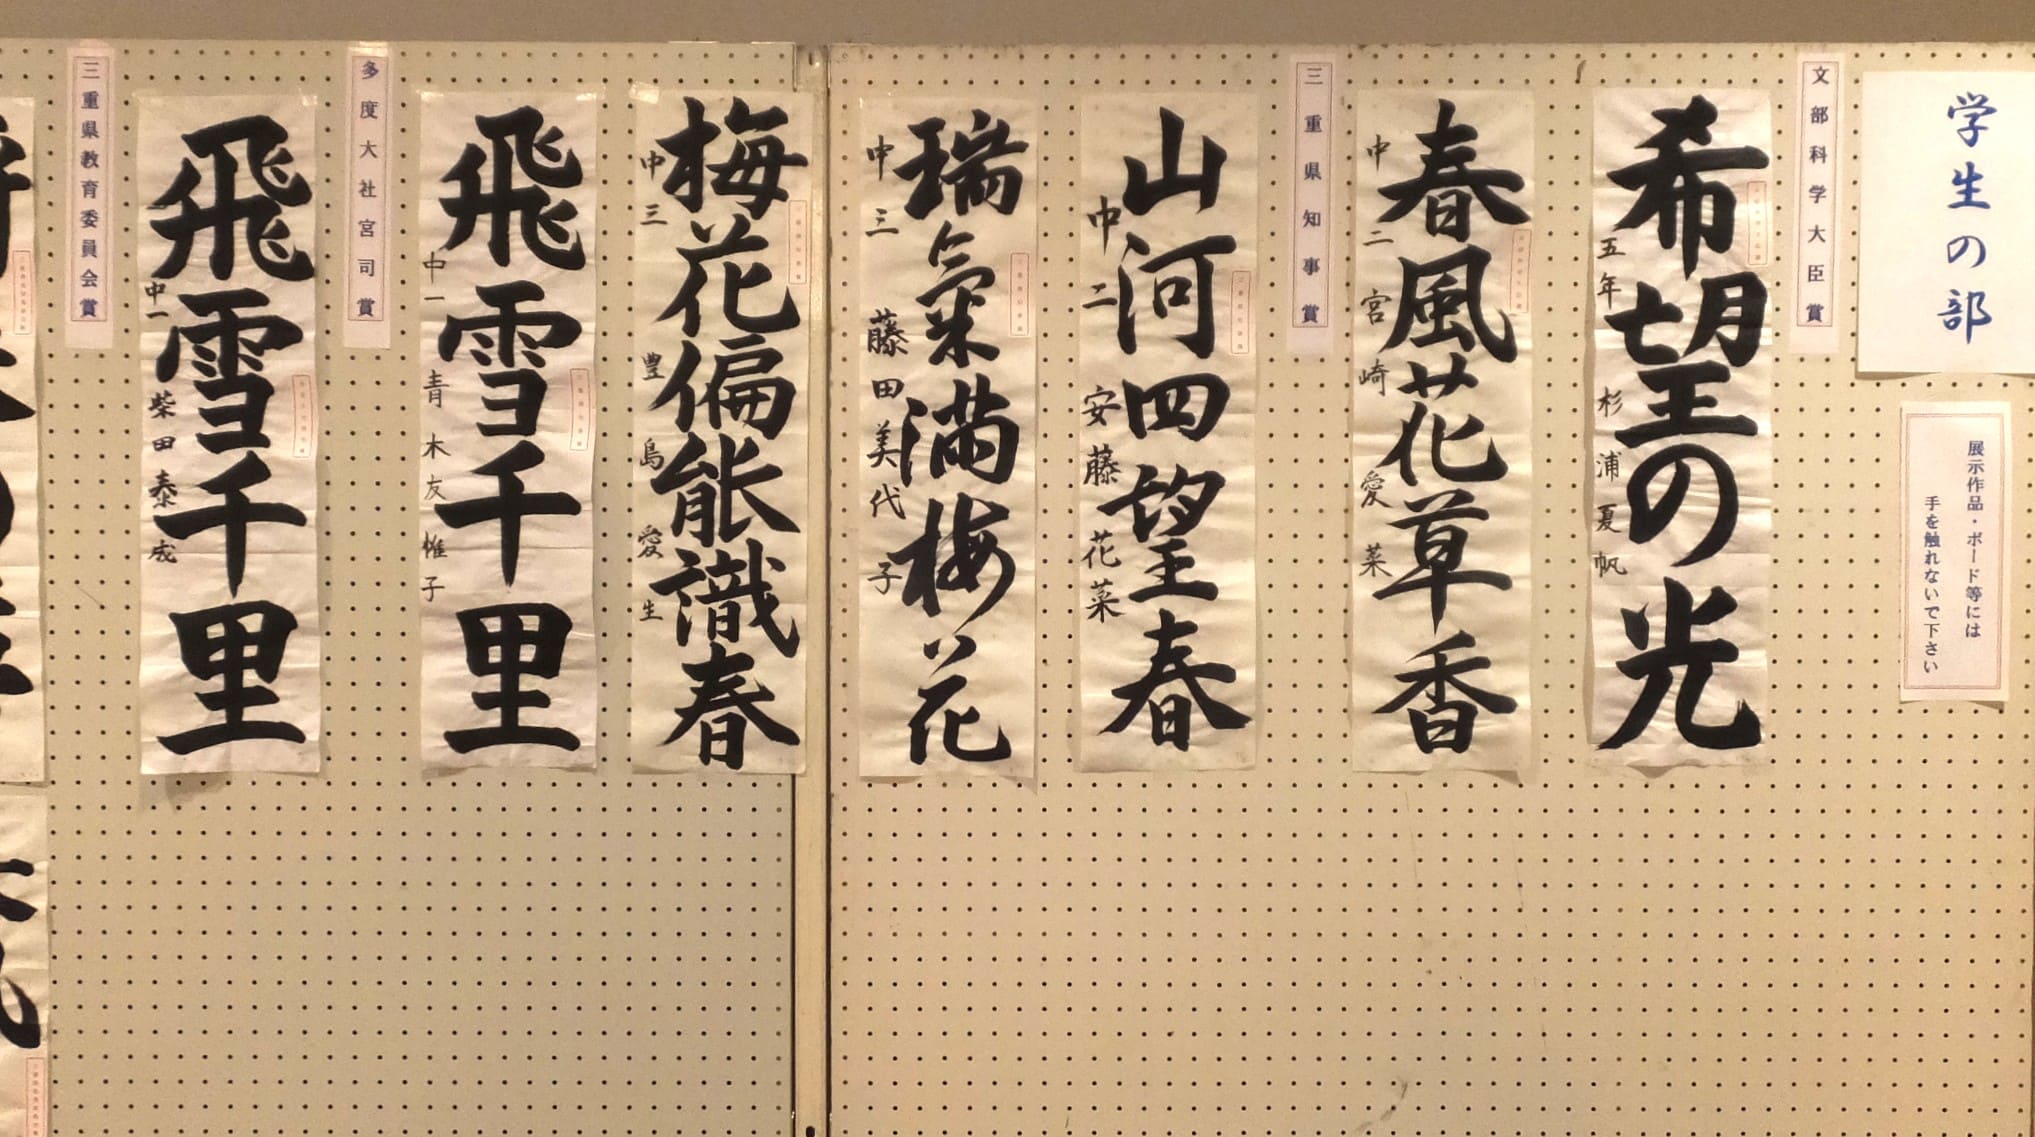 学生の部
展示作品・ボード等には
手を触れないで下さい
文部科学大臣賞
希望の光
五年 杉浦夏帆
春風花草香
中二 宮崎愛菜
三重県知事賞
山河四望春
中二 安藤花菜
瑞氣満梅花
中三 藤田美代子
梅花偏能識春
中三 豊島愛生
飛雪千里
中一 青木友惟子
多度大社宮司賞
飛雪千里
中一 柴田泰成
三重県教育委員会賞